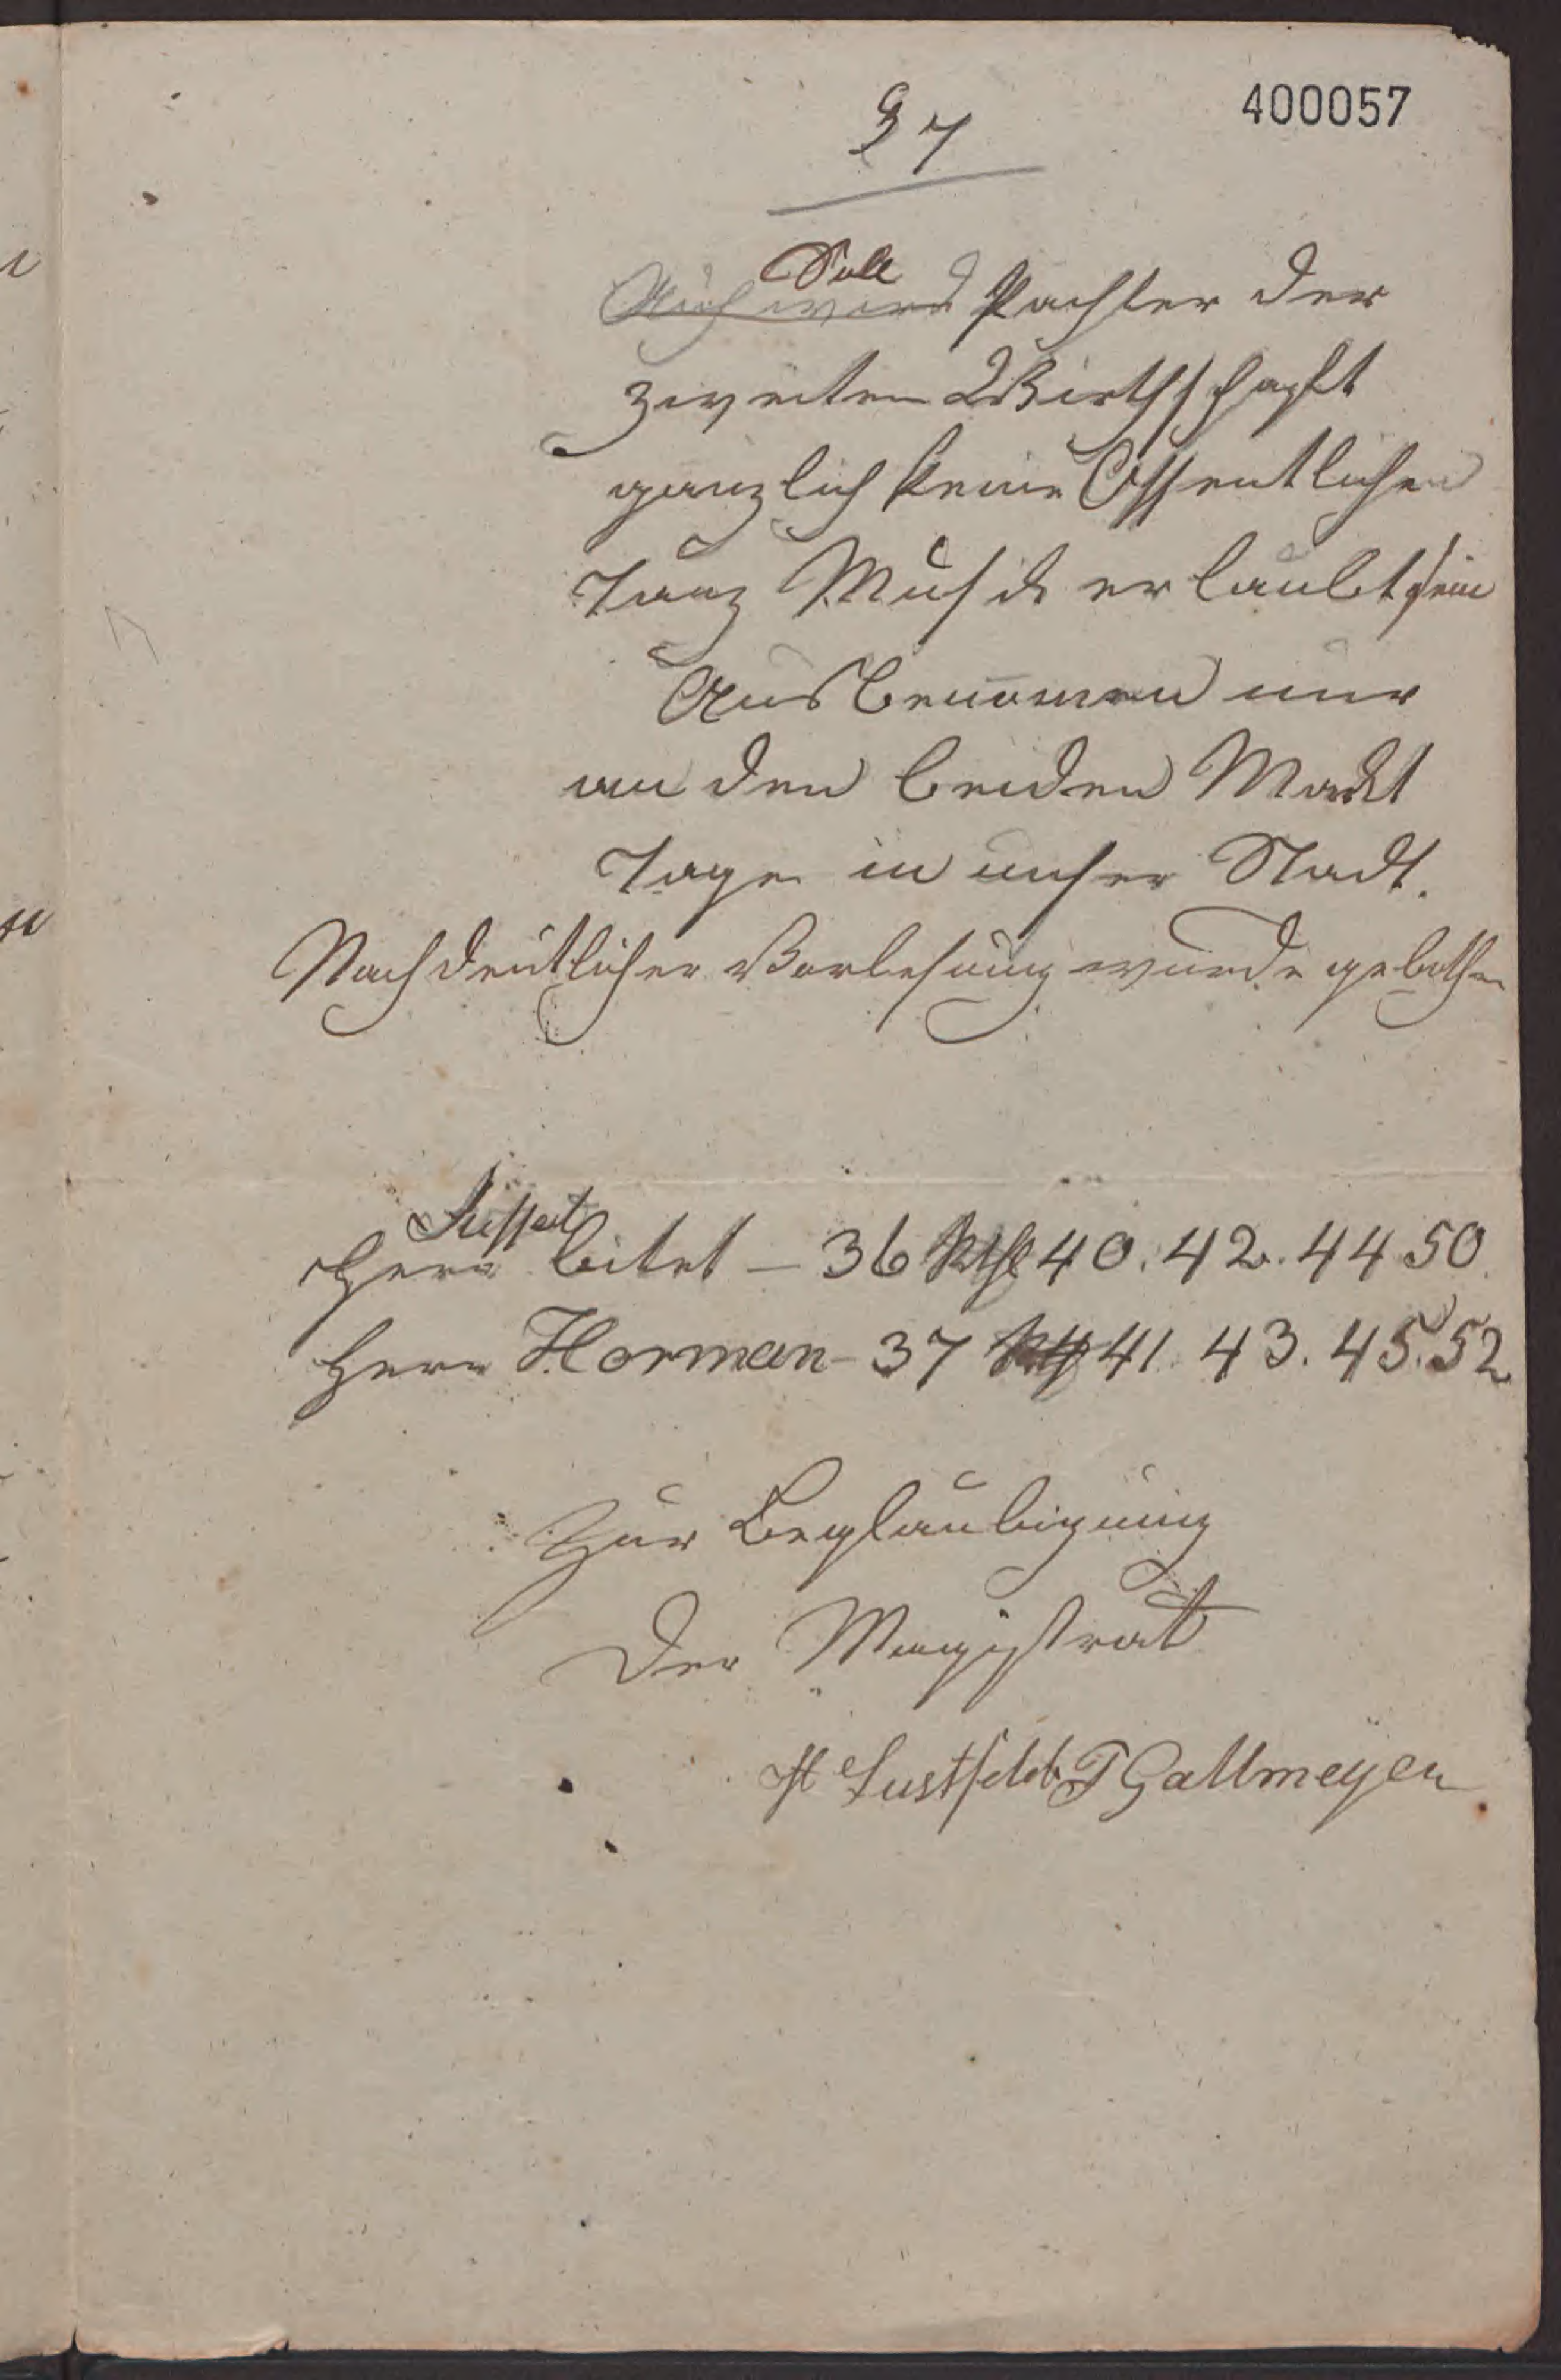 400057
§ 7
Soll
Auch wird Pachter der
zweiten Wirthschaft
ganzlich keine Öffentlichen
Tanz Musik erlaubt sein
Ausbenomen nur
an den beiden Markt
Tage in unser Stadt.
Nach deutlicher Vorlesung wurde gebothen
Herr bitet – 36 40. 42. 44 50.
Herr Horman – 37 41. 43. 45. 52
Zur Beglaubigung
Der Magistrat
Gallmeyer